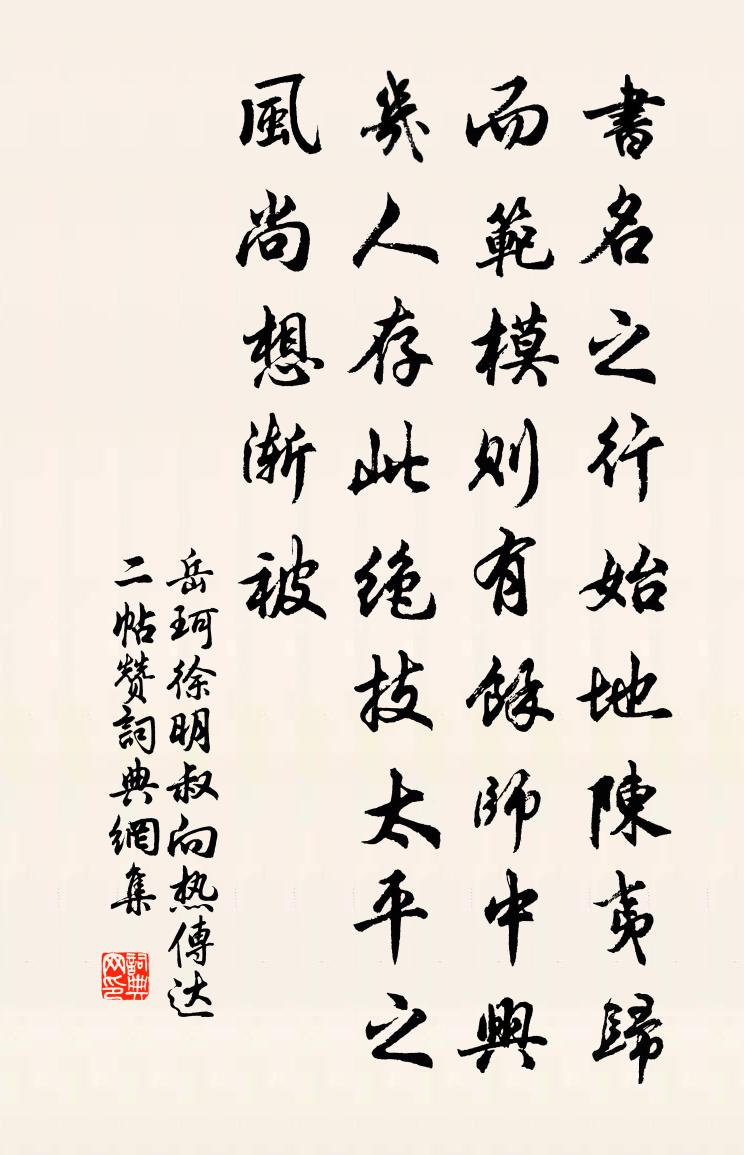 書名之行始地陳夷歸
而範模則有餘師中興
幾人存此绝技太平之
風尚想漸被
岳珂徐明叔向热傳达
二帖贊詞典網集
詞典网印